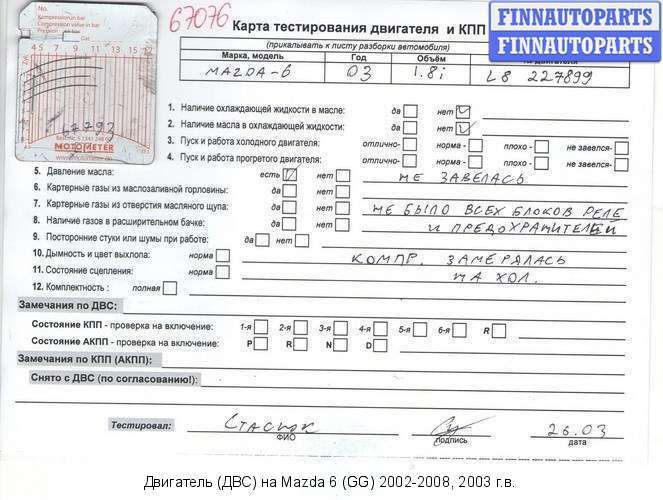 No
Kompression in bar
Compression value in bar
Dat.
4 5 7 10 12 15 17
67792
MOTOMETER
www.motometer.de
67076
Карта тестирования двигателя и КПП
FINNAUTOPARTS
FINNAUTOPARTS
(прикалывать к листу разборки автомобиля)
Марка, модель Год Объём № двигателя
MAZDA-6 03 1.8i L8 227899
1. Наличие охлаждающей жидкости в масле: да нет
2. Наличие масла в охлаждающей жидкости: да нет
3. Пуск и работа холодного двигателя: отлично- норма - плохо - не завелся-
4. Пуск и работа прогретого двигателя: отлично- норма - плохо - не завелся-
5. Давление масла: есть нет НЕ ЗАВЕЛАСЬ
6. Картерные газы из маслозаливной горловины: да нет
7. Картерные газы из отверстия масляного щупа: да нет НЕ БЫЛО ВСЕХ БЛОКОВ РЕЛЕ
8. Наличие газов в расширительном бачке: да нет И ПРЕДОХРАНИТЕЛЕЙ
9. Посторонние стуки или шумы при работе: да нет
10. Дымность и цвет выхлопа: норма КОМПР. ЗАМЕРЯЛАСЬ
11. Состояние сцепления: норма НА ХОЛ.
12. Комплектность : полная
Замечания по ДВС:
Состояние КПП - проверка на включение: 1-я 2-я 3-я 4-я 5-я 6-я R
Состояние АКПП - проверка на включение: P R N D
Замечания по КПП (АКПП):
Снято с ДВС (по согласованию!):
Тестировал: СТАСЮК 26.03
ФИО подпись дата
Двигатель (ДВС) на Mazda 6 (GG) 2002-2008, 2003 г.в.